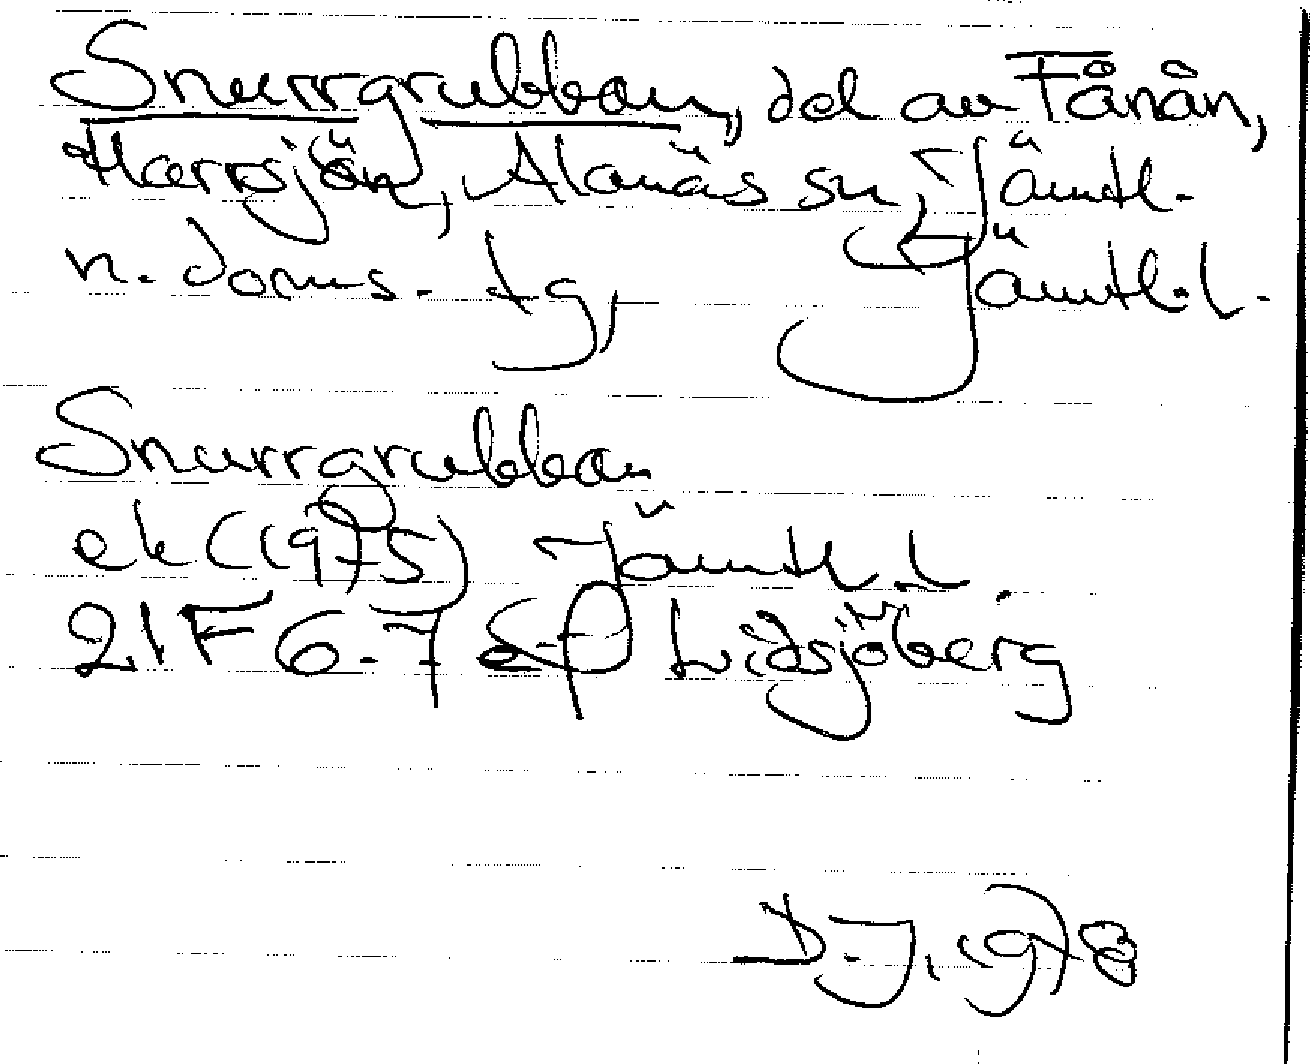 Snurrgrubban, del av Fånån,
Harrsjön, Alanäs sn, Jämtl.
n. doms. tg, Jämtl. l.
Snurrgrubban
ek (1975) Jämtl. l.
21F 6-7 Lidsjöberg
D.J. 1978